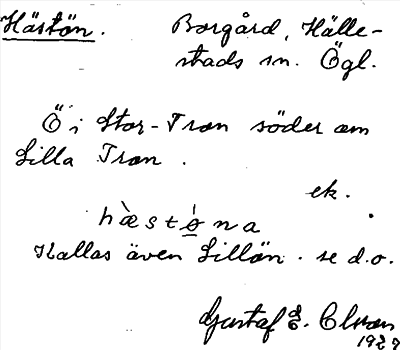 Hästön. Borgård, Hälle-
stads sn. Ögl.
Ö i Stor-Tron söder om
Lilla Tron.
ek.
hæ̀stǿna
Kallas även Lillön. se d.o.
Gustaf E. Olsson